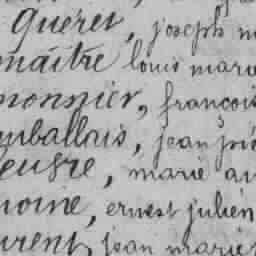 Quéret, joseph m
maître louis marie
monnier, françois
mballais, jean pie
leusre, marie an
moine, ernest julien
urent, jean marie